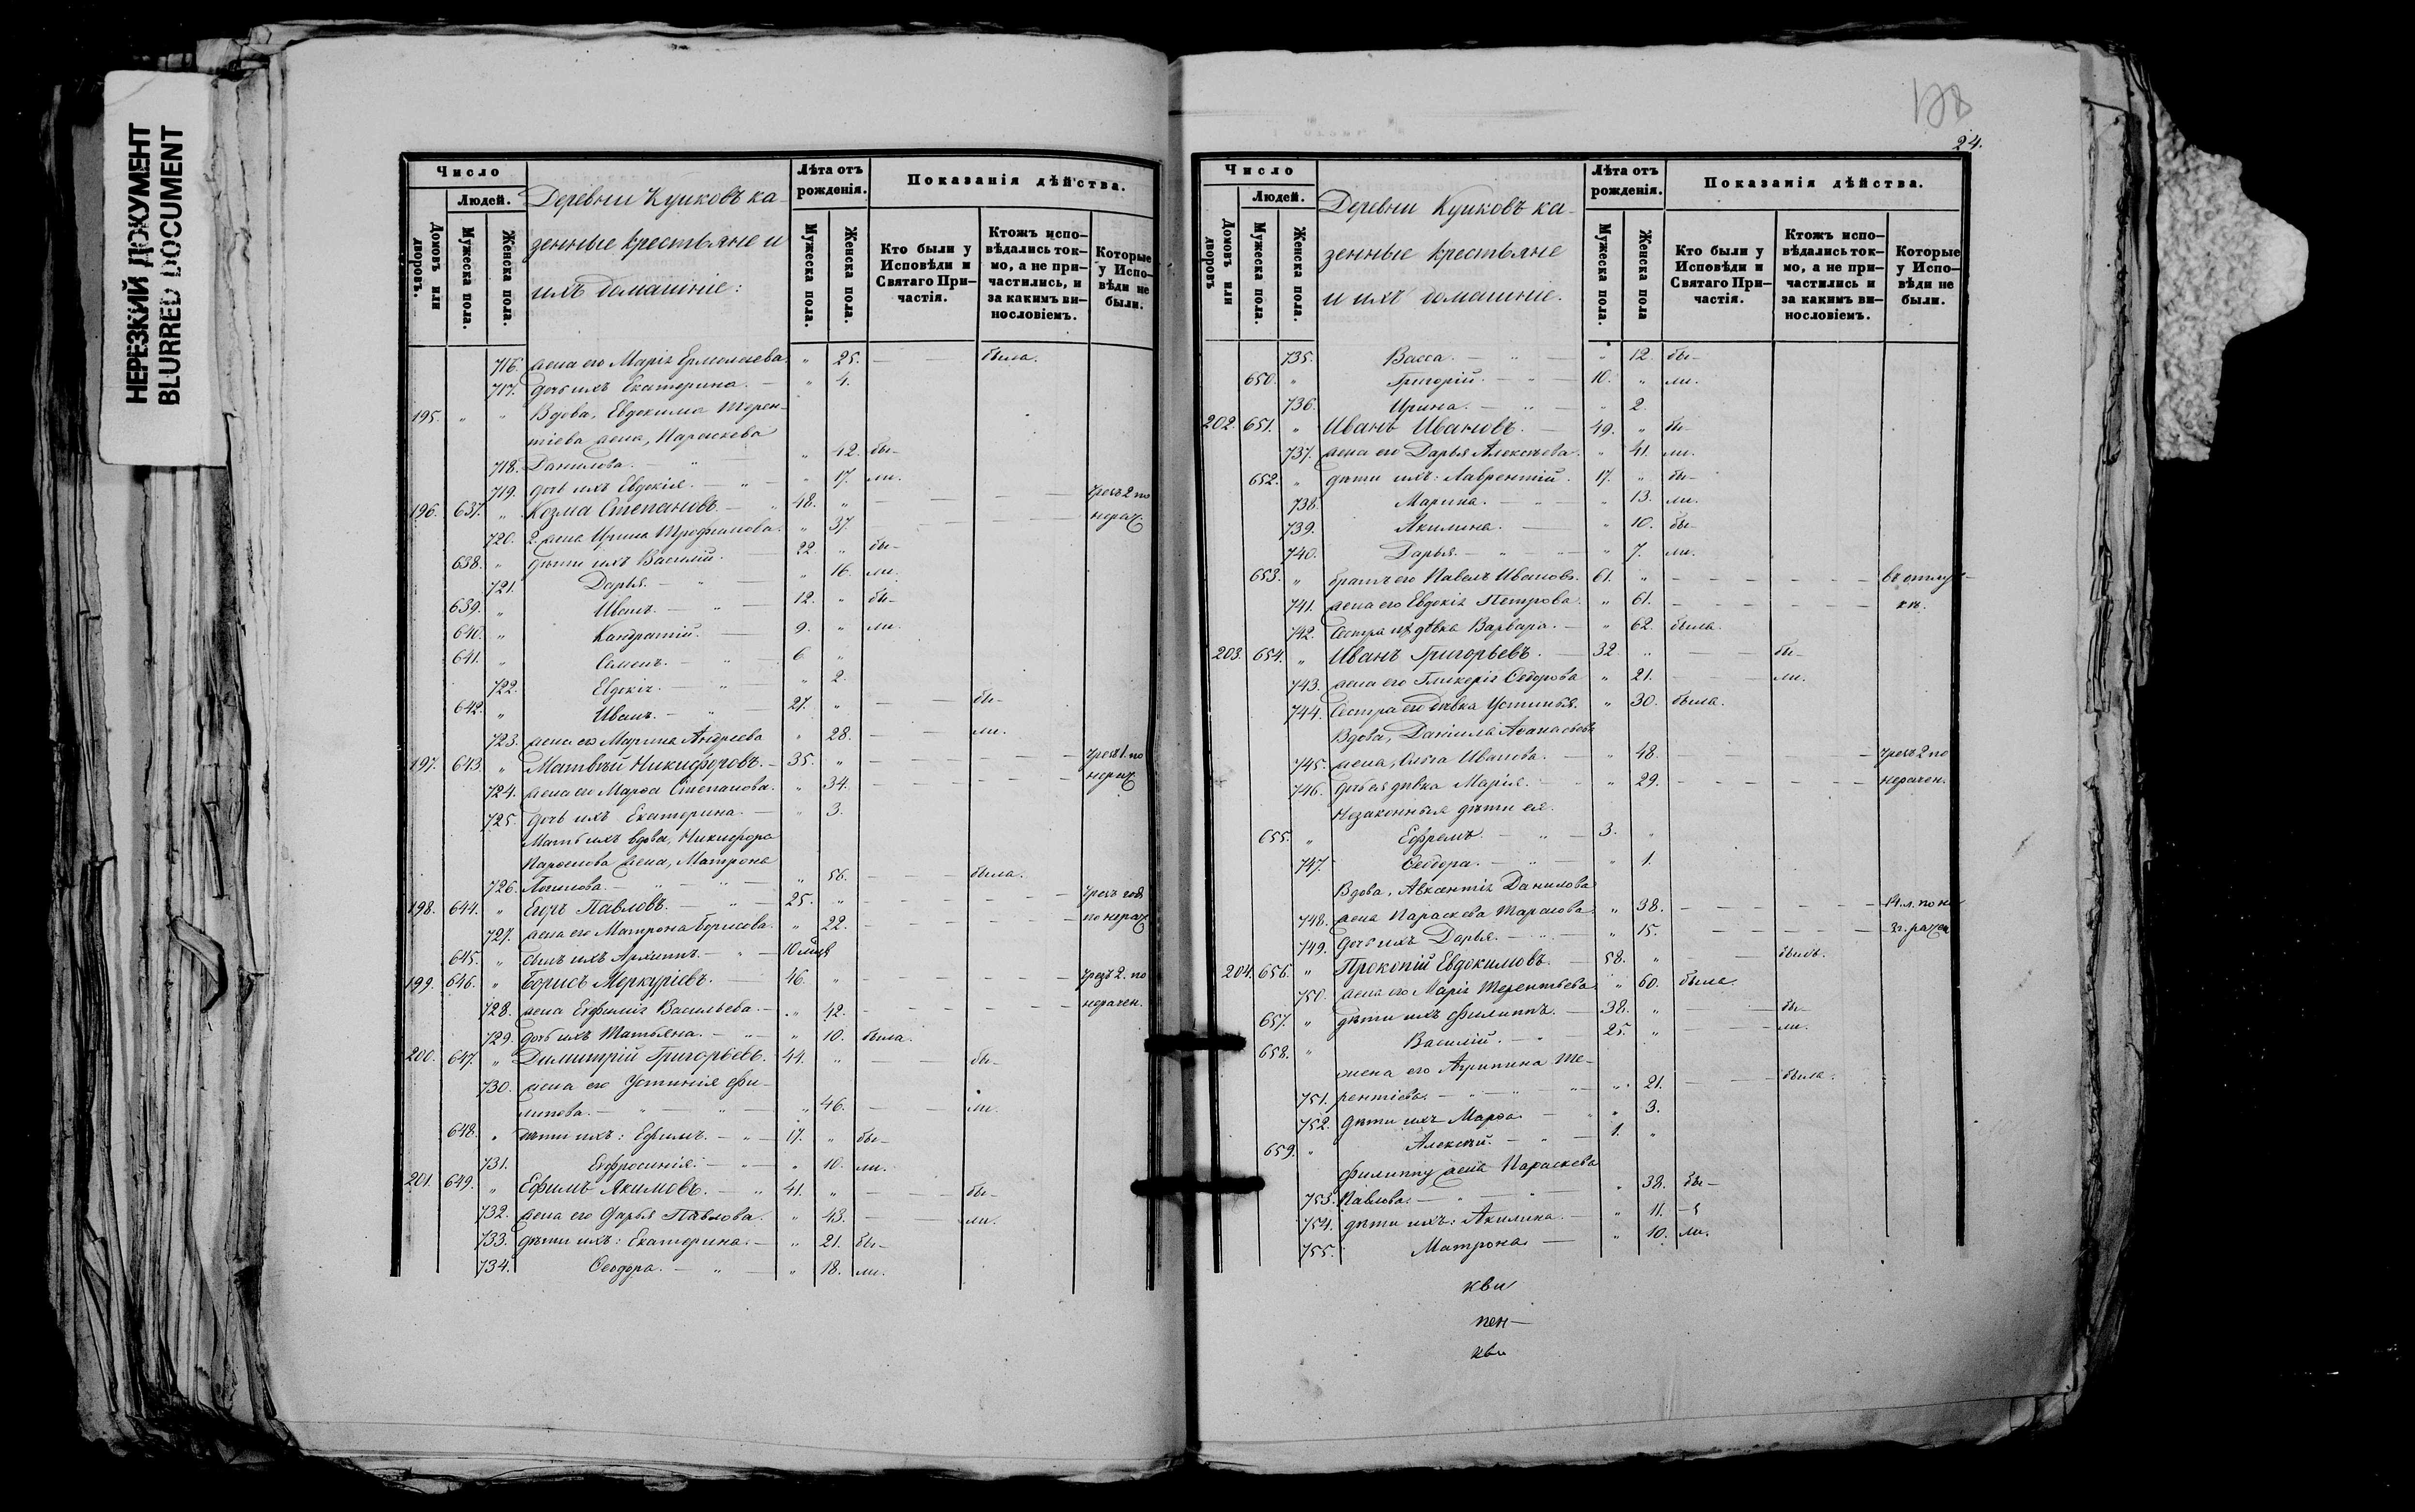 НЕРЕЗКИЙ ДОКУМЕНТ
BLURRED DOCUMENT
Число
Людей.
Домовъ или дворовъ.
Мужеска пола.
Женска пола.
Деревни Кушковъ ка-
зенные крестьяне и
ихъ домашніе:
Лѣта отъ рожденія.
Мужеска пола.
Женска пола.
Показанія дѣйства.
Кто были у Исповѣди и Святаго При-частія.
Ктожъ испо-вѣдались ток-мо, а не при-частились, и за какимъ ви-нословіемъ.
Которые у Испо-вѣди не были.
716. жена его Марія Ермолаева. „ 25. — — была.
717. дочь ихъ Екатерина. — „ 4.
195. „ „ Вдова, Евдокима Терен-
тіева жена, Параскева
718. Данилова. — „ — „ 42. бы-
719. дочь ихъ Евдокія. — „ — „ 17. ли.
196. 637. „ Козма Степановъ. — „ 48. „ — — — — чрезъ 2 по
720. 2. жена Ирина Трофимова. „ 37. — — — — нерач.
638. „ дѣти ихъ Василій. — 22. „ бы-
721. Дарья. — „ — „ 16. ли.
639. „ Иванъ. — „ — 12. „ бы-
640. „ Кандратій. 9. „ ли.
641. „ Семенъ. — „ — 6 „
722. Евдокія. — „ — „ 2.
642. „ Иванъ. — „ — 27. „ — — бы-
723. жена его Марина Андреева „ 28. — — ли.
197. 643. „ Матвѣй Никифоровъ. — 35. „ — — — — чрезъ 1. по
724. жена его Марѳа Степанова. „ 34. — — — — нерач.
725. дочь ихъ Екатерина. — „ 3.
Мать ихъ вдова, Никифора
жена, Матрона
726. Логинова. — „ — „ — „ 56. — — была.
198. 644. „ Егоръ Павловъ. — „ — 25. „ — — — — чрезъ год
727. жена его Матрона Борисова. „ 22. — — — — по нерач.
645. „ сынъ ихъ Архиппъ. — „ — 10 мѣся
199. 646. „ Борисъ Меркуріевъ. — 46. „ — — — — чрезъ 2. по
728. жена Евфимія Васильева. — „ 42. — — — — нерачен.
729. дочь ихъ Татьяна. — „ — „ 10. была.
200. 647. „ Димитрій Григорьевъ. 44. „ — — бы-
730. жена его Устинія Фи-
липева. — „ — „ — „ 46. — — ли.
648. „ дѣти ихъ: Ефимъ. — „ — 17. „ бы-
731. Евфросинія. — „ — „ 10. ли.
201. 649. „ Ефимъ Якимовъ. — „ 41. „ — — бы-
732. жена его Дарья Павлова. „ 43. — — ли.
733. дѣти ихъ: Екатерина. — „ 21. бы-
734. Ѳеодора. — „ — „ 18. ли.
24.
Число
Людей.
Домовъ или дворовъ
Мужеска пола.
Женска пола.
Деревни Кушковъ ка-
зенные крестьяне
и ихъ домашніе.
Лѣта отъ рожденія.
Мужеска пола.
Женска пола
Показанія дѣйства.
Кто были у Исповѣди и Святаго При-частія.
Ктожъ испо-вѣдались ток-мо, а не при-частились и за какимъ ви-нословіемъ.
Которые у Испо-вѣди не были.
735. Васса. — „ — „ 12. бы-
650. „ Григорій. — „ — 10. „ ли.
736. Ирина. — „ — „ 2.
202. 651. „ Иванъ Ивановъ. — 49. „ бы-
737. жена его Дарья Алексѣева. „ 41. ли.
652. „ дѣти ихъ: Лаврентій. 17. „ бы-
738. Марина. — „ — „ 13. ли.
739. Акилина. — „ 10. бы-
740. Дарья. — „ — „ — „ 7. ли.
653. „ братъ его Павелъ Ивановъ. 61. „ — — — — въ отлуч-
741. жена его Евдокія Петрова. „ 61. — — — — кѣ.
742. Сестра их дѣвка Варвара. — „ 62. была.
203. 654. „ Иванъ Григорьевъ. — 32. „ — — бы-
743. жена его Гликерія Ѳедорова „ 21. — — ли.
744. Сестра его дѣвка Устинья. „ 30. была.
Вдова, Даніила Аѳанасьева
745. жена, Ольга Иванова. — „ 48. — — — — чрезъ 2 по
746. дочь ея дѣвка Марія. — „ 29. — — — — нерачен.
Незаконныя дѣти ея.
655. „ Ефремъ. — „ — 3. „
747. Ѳеодора. — „ — „ 1.
Вдова, Авксентія Данилова
748. жена Параскева Тарасова. „ 38. — — — — 14. л. по не
749. дочь ихъ Дарья. — „ — „ 15. — — — — рачен
204. 656. „ Прокопій Евдокимовъ. — 58. „ — — былъ.
750. жена его Марія Терентьева „ 60. была.
657. „ дѣти ихъ Филиппъ. — 38. „ — — бы-
658. „ Василій. — „ 25. „ — — ли.
жена его Агрипина Те-
751. рентіева. — „ — „ — „ 21. — — была.
752. дѣти ихъ Марѳа. — „ „ 3.
659. „ Алексѣй. — „ — 1. „
Филиппу жена Параскева
753. Павлова. — „ — „ — „ 38. бы-
754. дѣти ихъ: Акилина. — „ 11. -
755. Матрона. — „ 10. ли.